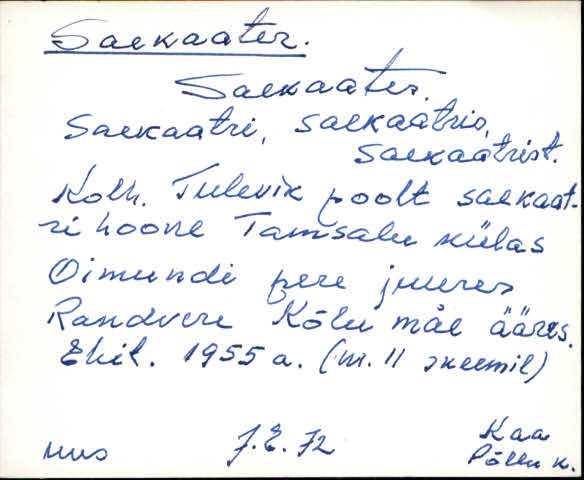 Saekaater.
Saekaater.
Saekaatri, saekaatris,
saekaatrist.
Kolh. Tulevik poolt saekaat-
ri hoone Tamsalu külas
Oimundi pere juures
Randvere Kõlu mäe ääres.
Ehit. 1955 a. (nr. 11 skeemil)
Kaa
mus J.E. 72 Põllu k.